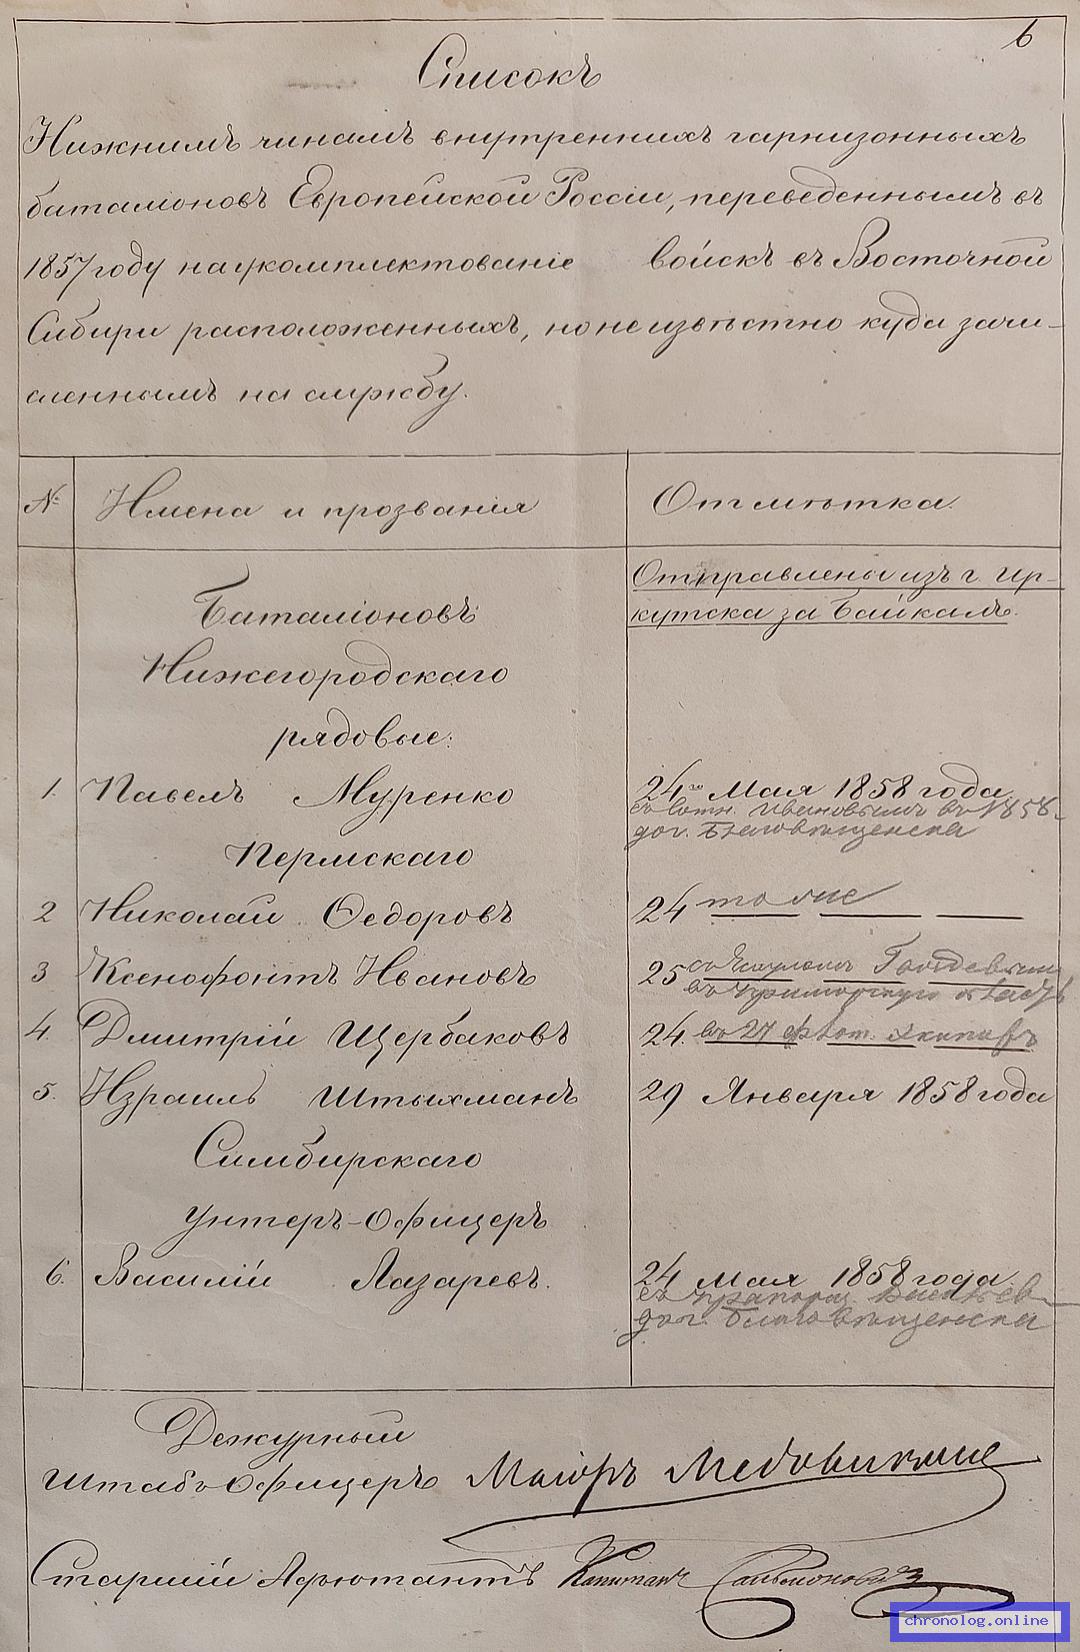 6
Списокъ
Нижнимъ чинамъ внутреннихъ гарнизонныхъ
баталіоновъ Европейской Россіи, переведеннымъ въ
1857 году на укомплектованіе войскъ въ Восточной
Сибири расположенныхъ, но неизвѣстно куда зачи-
сленнымъ на службу.
№ Имена и прозванія Отмѣтка.
Отправлены изъ г. Ир-
кутска за Байкалъ.
Баталіоновъ
Нижегородскаго
рядовые:
1. Павелъ Муренко 24го Мая 1858 года
съ сотн. Ивановымъ въ 1858
до г. Благовѣщенска
Пермскаго
2 Николай Ѳедоровъ 24 то же
3 Ксенофонтъ Ивановъ 25
въ Приморскую область
4. Дмитрій Щербаковъ 24 въ 27 флот. экипажъ
5. Израиль Штыхманъ 29 Января 1858 года
Симбирскаго
унтеръ-офицеръ
6. Василій Лазаревъ. 24 Мая 1858 года.
съ прапорщ.
до г. Благовѣщенска
Дежурный
Штабъ Офицеръ Маіоръ
Старшій Адъютантъ Капитанъ
chronolog.online